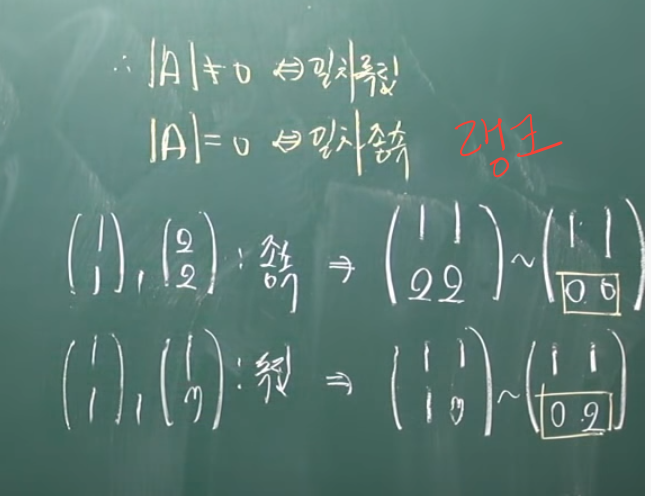 ∴ |A| ≠ 0 ⇔ 일차독립
|A| = 0 ⇔ 일차종속 랭크
(1 1), (2 2) : 종속 ⇒ (1 1 2 2) ~ (1 1 0 0)
(1 1), (1 3) : 독립 ⇒ (1 1 1 3) ~ (1 1 0 2)